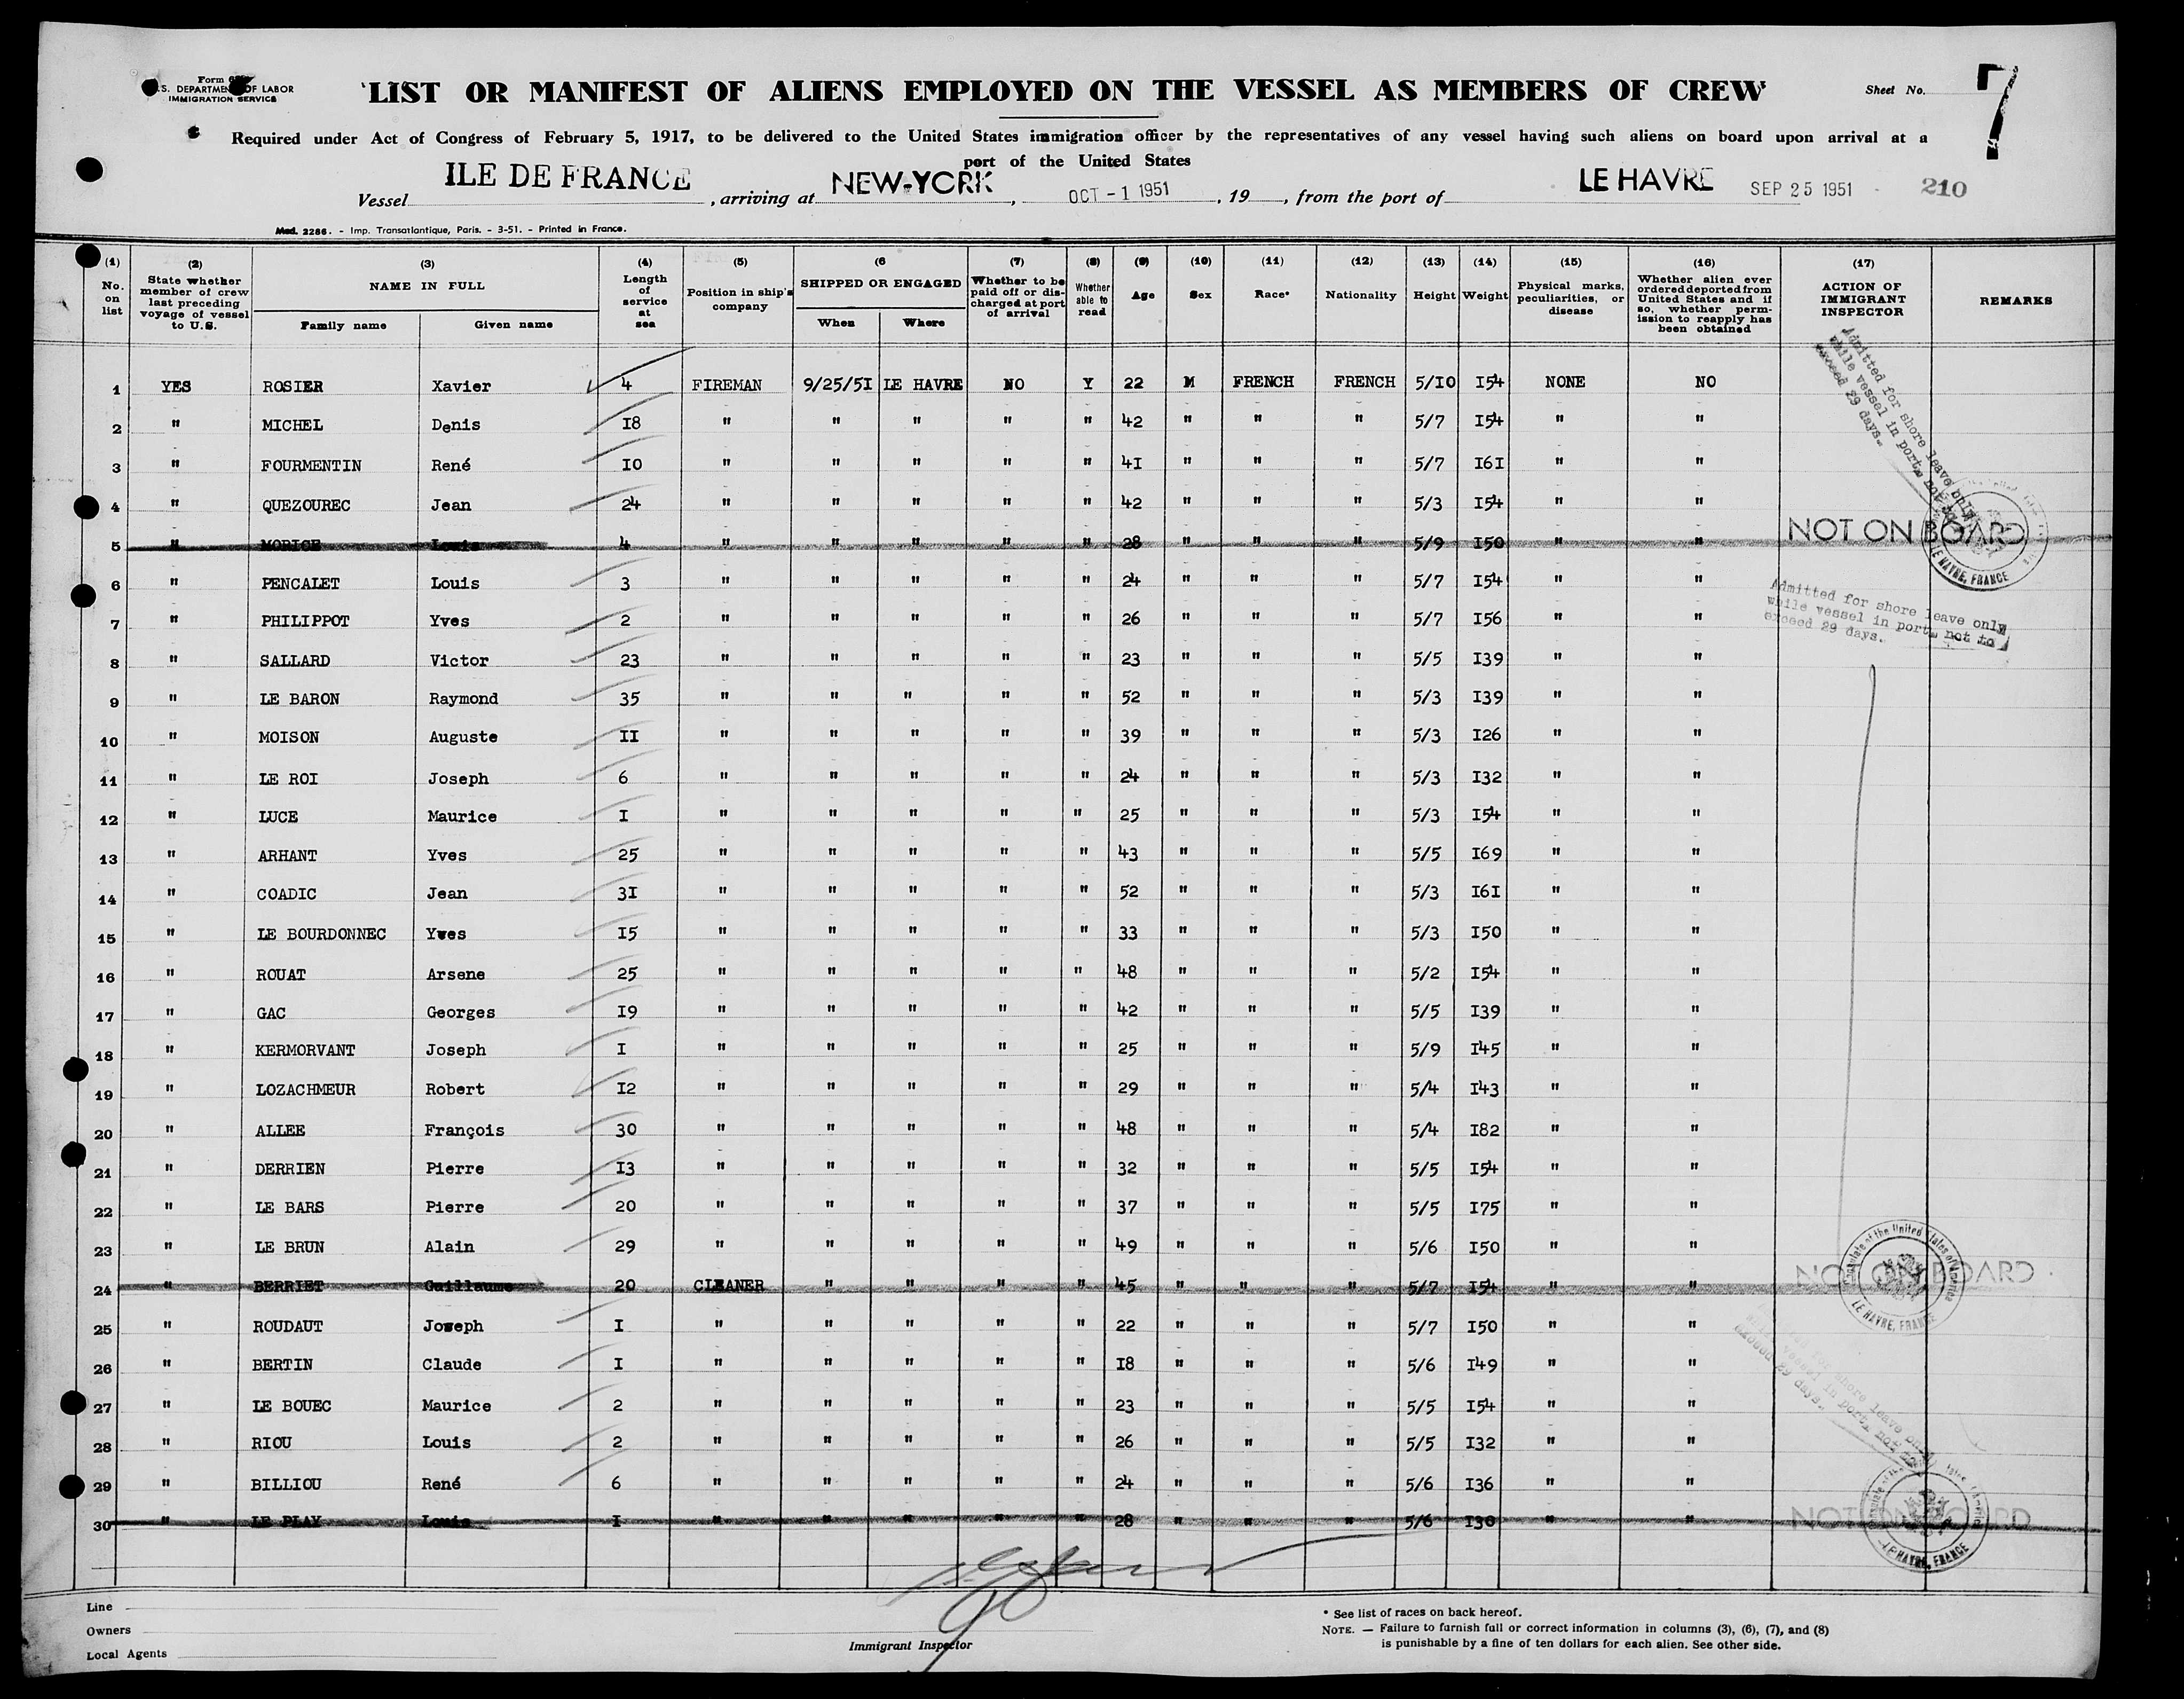 Form
U.S. DEPARTMENT OF LABOR
IMMIGRATION SERVICE
LIST OR MANIFEST OF ALIENS EMPLOYED ON THE VESSEL AS MEMBERS OF CREW
Sheet No. 7
Required under Act of Congress of February 5, 1917, to be delivered to the United States immigration officer by the representatives of any vessel having such aliens on board upon arrival at a
port of the United States
Vessel ILE DE FRANCE, arriving at NEW-YORK, OCT -1 1951, 19, from the port of LE HAVRE SEP 25 1951 210
Mod. 2286. - Imp. Transatlantique, Paris. - 3-51. - Printed in France.
(1) No. on list
(2) State whether member of crew last preceding voyage of vessel to U.S.
(3) NAME IN FULL Family name Given name
(4) Length of service at sea
(5) Position in ship's company
(6 SHIPPED OR ENGAGED When Where
(7) Whether to be paid off or discharged at port of arrival
(8) Whether able to read
(9) Age
(10) Sex
(11) Race*
(12) Nationality
(13) Height
(14) Weight
(15) Physical marks, peculiarities, or disease
(16) Whether alien ever ordered deported from United States and if so, whether permission to reapply has been obtained
(17) ACTION OF IMMIGRANT INSPECTOR
REMARKS
1 YES ROSIER Xavier 4 FIREMAN 9/25/5I LE HAVRE NO Y 22 M FRENCH FRENCH 5/I0 I54 NONE NO
2 " MICHEL Denis I8 " " " " " 42 " " " 5/7 I54 " "
3 " FOURMENTIN René I0 " " " " " 4I " " " 5/7 I6I " "
4 " QUEZOUREC Jean 24 " " " " " 42 " " " 5/3 I54 " "
5 " MORICE Louis 4 " " " " " 28 " " " 5/9 I50 " " NOT ON BOARD
6 " PENCALET Louis 3 " " " " " 24 " " " 5/7 I54 " "
7 " PHILIPPOT Yves 2 " " " " " 26 " " " 5/7 I56 " "
8 " SALLARD Victor 23 " " " " " 23 " " " 5/5 I39 " "
9 " LE BARON Raymond 35 " " " " " 52 " " " 5/3 I39 " "
10 " MOISON Auguste II " " " " " 39 " " " 5/3 I26 " "
11 " LE ROI Joseph 6 " " " " " 24 " " " 5/3 I32 " "
12 " LUCE Maurice I " " " " " 25 " " " 5/3 I54 " "
13 " ARHANT Yves 25 " " " " " 43 " " " 5/5 I69 " "
14 " COADIC Jean 3I " " " " " 52 " " " 5/3 I6I " "
15 " LE BOURDONNEC Yves I5 " " " " " 33 " " " 5/3 I50 " "
16 " ROUAT Arsene 25 " " " " " 48 " " " 5/2 I54 " "
17 " GAC Georges I9 " " " " " 42 " " " 5/5 I39 " "
18 " KERMORVANT Joseph I " " " " " 25 " " " 5/9 I45 " "
19 " LOZACHMEUR Robert I2 " " " " " 29 " " " 5/4 I43 " "
20 " ALLEE François 30 " " " " " 48 " " " 5/4 I82 " "
21 " DERRIEN Pierre I3 " " " " " 32 " " " 5/5 I54 " "
22 " LE BARS Pierre 20 " " " " " 37 " " " 5/5 I75 " "
23 " LE BRUN Alain 29 " " " " " 49 " " " 5/6 I50 " "
24 " BERRIET Guillaume 20 CLEANER " " " " 45 " " " 5/7 I54 " " NOT ON BOARD
25 " ROUDAUT Joseph I " " " " " 22 " " " 5/7 I50 " "
26 " BERTIN Claude I " " " " " I8 " " " 5/6 I49 " "
27 " LE BOUEC Maurice 2 " " " " " 23 " " " 5/5 I54 " "
28 " RIOU Louis 2 " " " " " 26 " " " 5/5 I32 " "
29 " BILLIOU René 6 " " " " " 24 " " " 5/6 I36 " "
30 " LE PLAY Louis I " " " " " 28 " " " 5/6 I30 " " NOT ON BOARD
Admitted for shore leave only
while vessel in port, not to
exceed 29 days.
LE HAVRE, FRANCE
Admitted for shore leave only
while vessel in port, not to
exceed 29 days.
Consulate of the United States of America
LE HAVRE, FRANCE
shore leave only
vessel in port, not to
exceed 29 days.
LE HAVRE, FRANCE
Line
Owners
Local Agents
Immigrant Inspector
* See list of races on back hereof.
NOTE. — Failure to furnish full or correct information in columns (3), (6), (7), and (8)
is punishable by a fine of ten dollars for each alien. See other side.